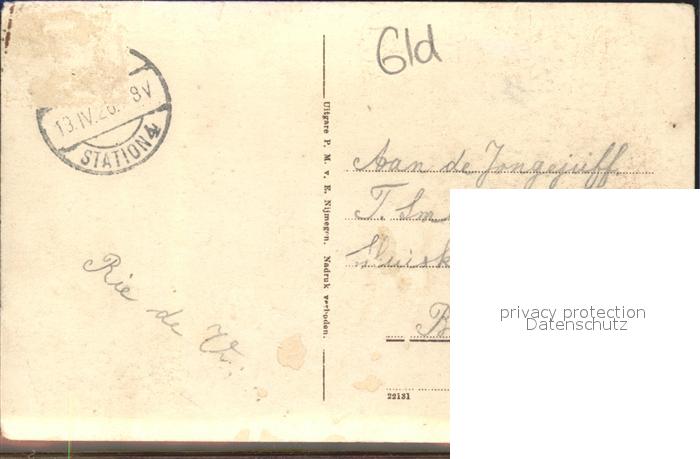 Gld
13.IV.26. 8V
STATION 4
Uitgave P. M. v. E. Nijmegen. Nadruk verboden.
Aan de Jongejuff.
T. Sm
Rie de Vr.
22131
privacy protection
Datenschutz